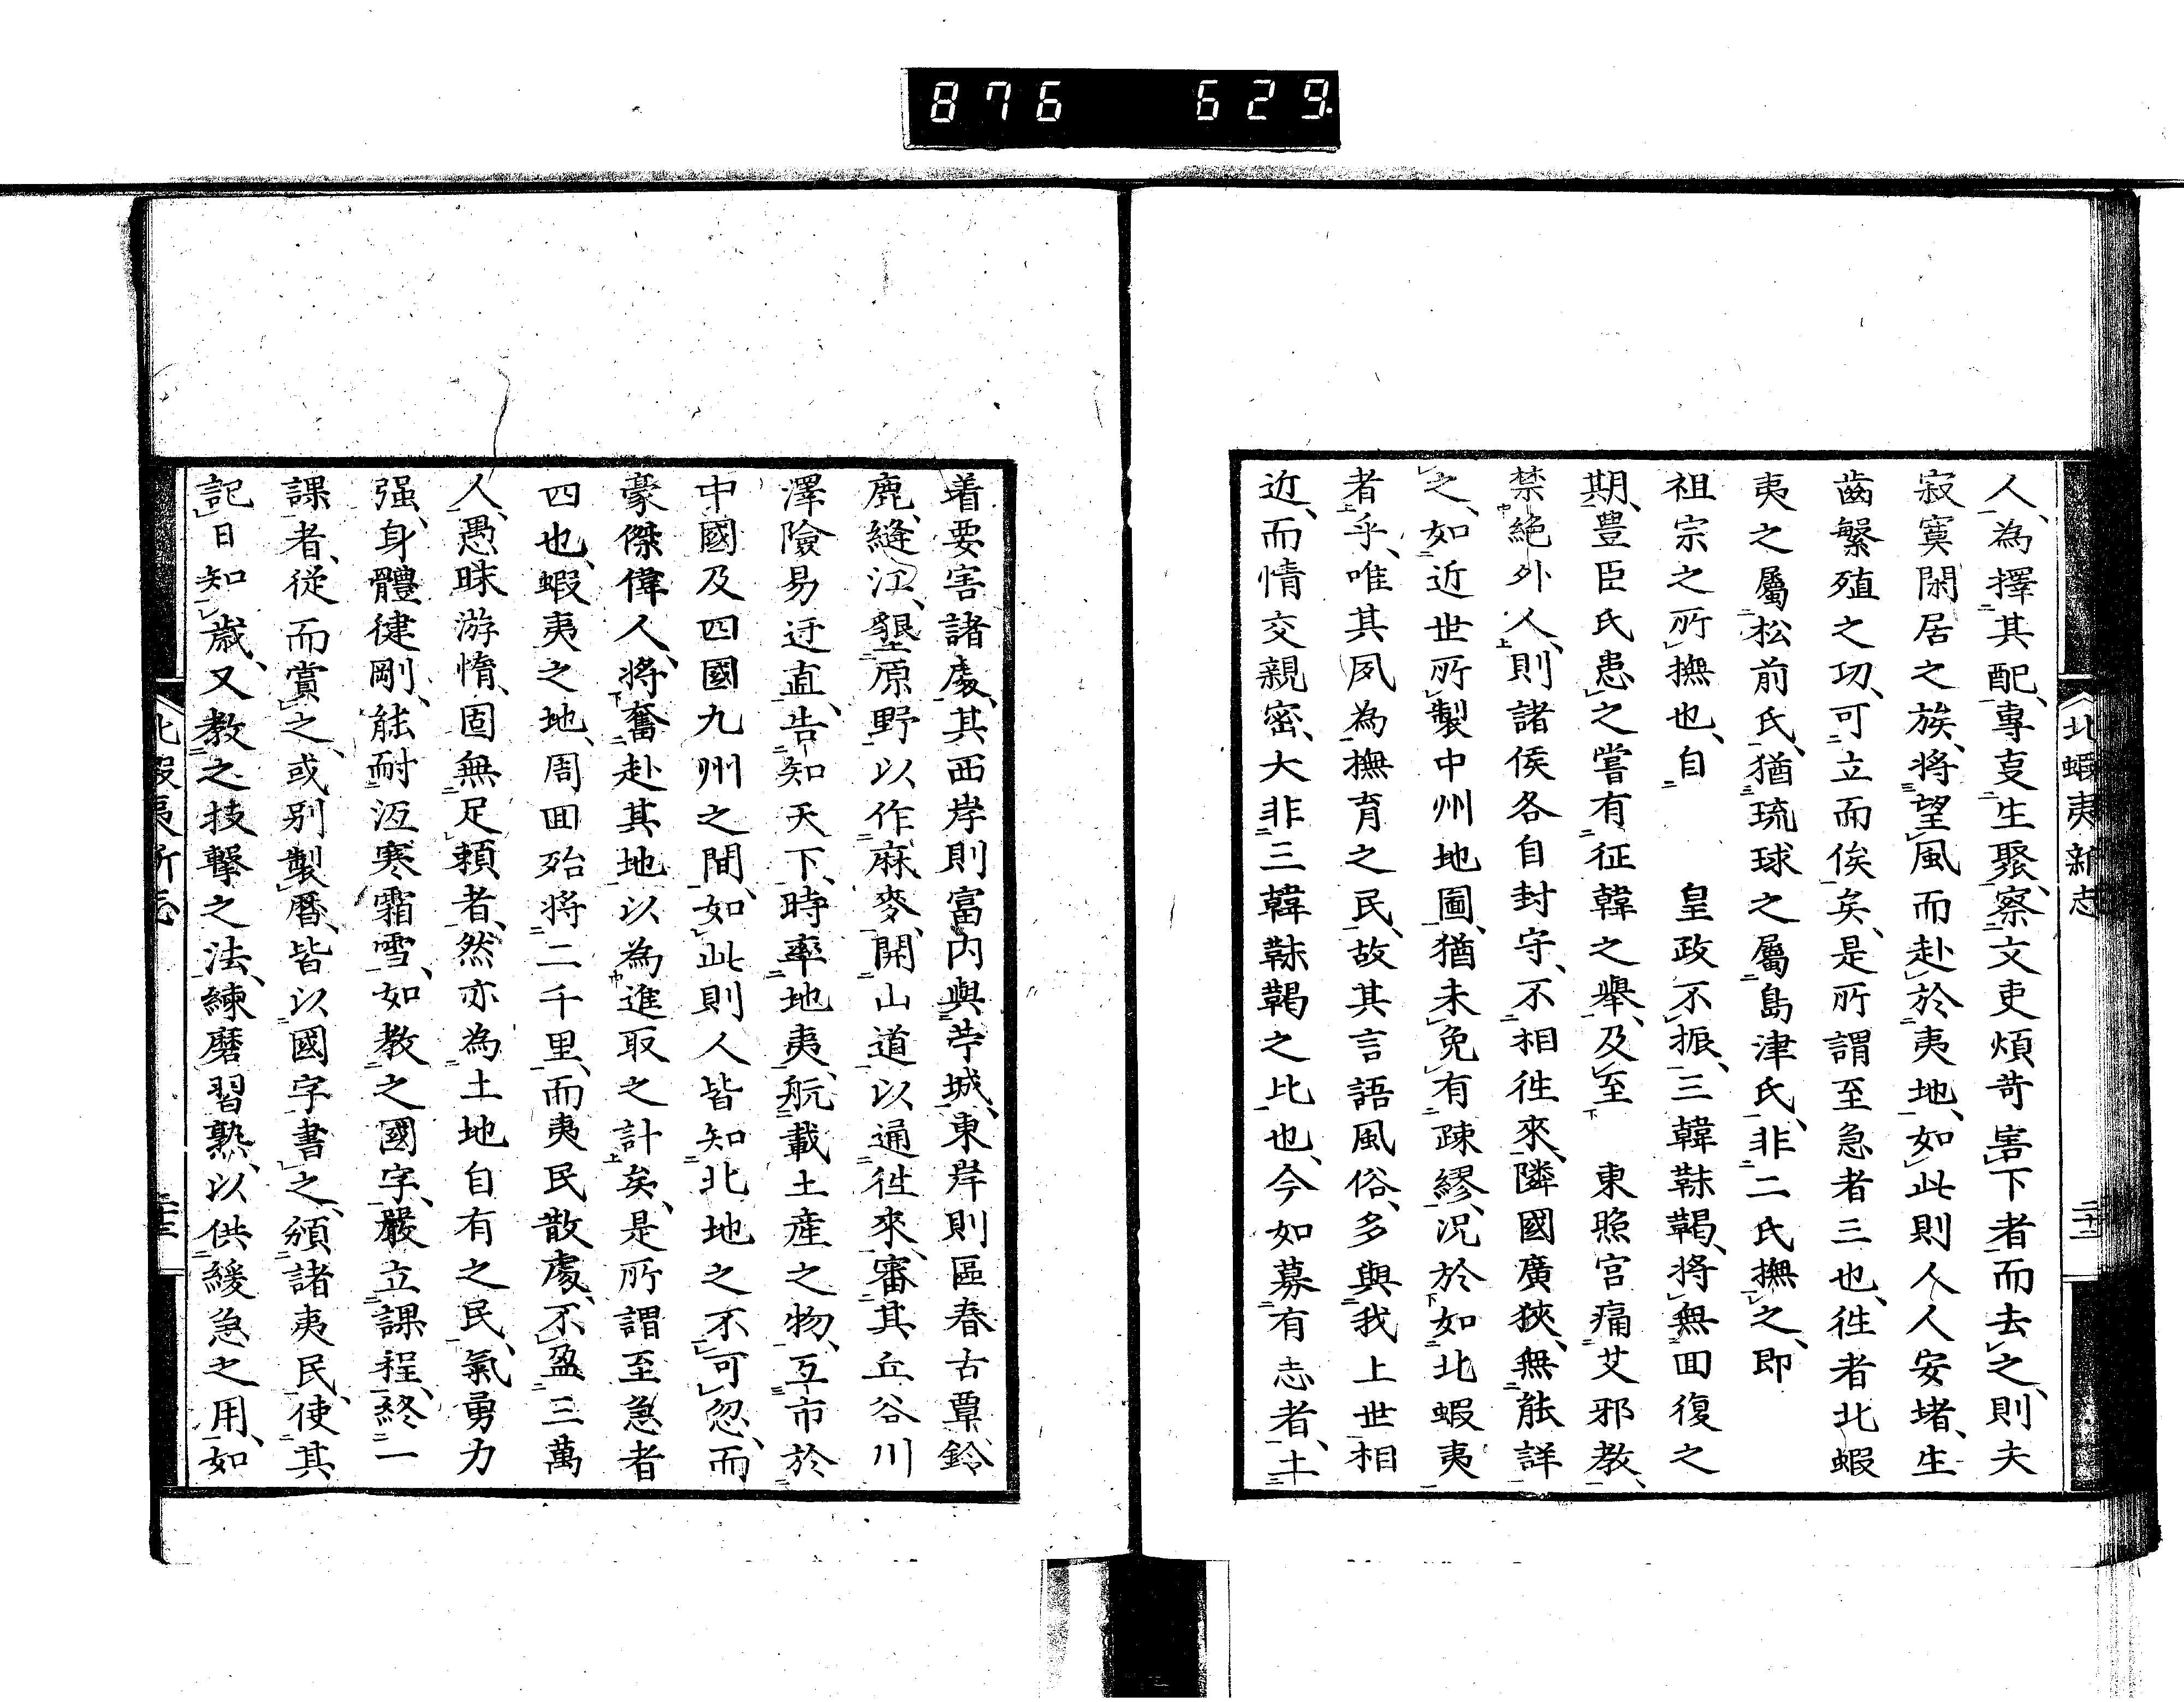 876 629
北蝦夷新志
二十二
人、為擇其配、專克生聚、察文吏煩苛害下者而去之、則夫
寂寞閑居之族、將望風而赴於夷地、如此則人人安堵、生
齒繁殖之功、可立而俟矣、是所謂至急者三也、徃者北蝦
夷之屬松前氏、猶琉球之屬島津氏、非二氏撫之、即
祖宗之所撫也、自 皇政不振、三韓靺鞨、將無回復之
期、豊臣氏患之嘗有征韓之舉、及至 東照宮痛艾邪教、
禁絶外人、則諸侯各自封守、不相徃來、隣國廣狹、無能詳
之、如近世所製中州地圖、猶未免有疎繆、况於如北蝦夷
者乎、唯其夙為撫育之民、故其言語風俗、多與我上世相
近、而情交親密、大非三韓靺鞨之比也、今如募有志者、土
着要害諸處、其西岸則富内與苧城、東岸則區春古覃鈴
鹿縫江、墾原野以作麻麥、開山道以通徃來、審其丘谷川
澤險易迂直、告知天下、時率地夷、航載土産之物、互市於
中國及四國九州之間、如此則人皆知北地之不可忽、而
豪傑偉人、將奮赴其地以為進取之計矣、是所謂至急者
四也、蝦夷之地、周回殆將二千里、而夷民散處、不盈三萬
人、愚昧游惰、固無足頼者、然亦為土地自有之民、氣勇力
强、身體健剛、能耐沍寒霜雪、如教之國字、嚴立課程、終一
課者、從而賞之、或别製暦、皆以國字書之、頒諸夷民、使其
記日知歳、又教之技擊之法、練磨習熟、以供緩急之用、如
北蝦夷新志
二十三